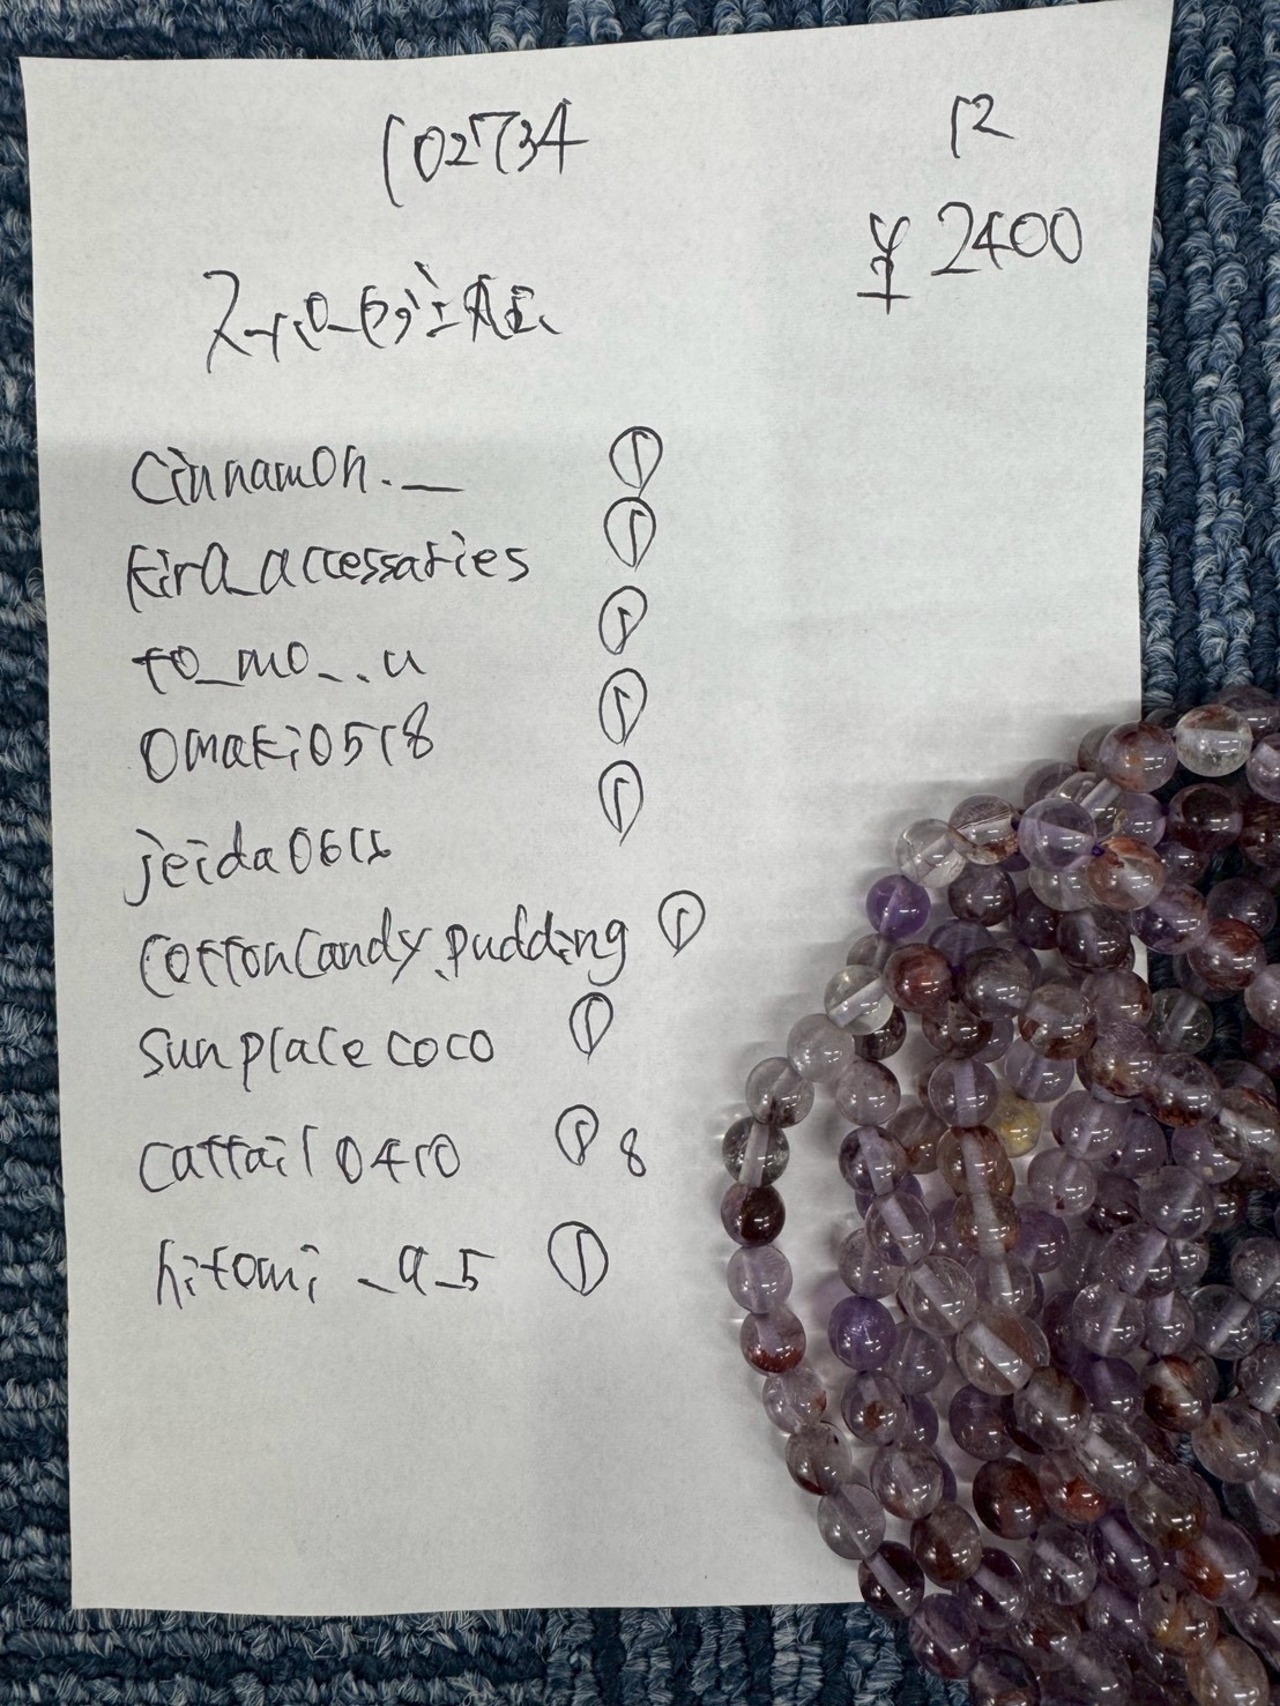 102734
12
¥2400
スーパーセブン
cinnamon._
①
kira_accessaries
①
to_mo_..u
①
omaki0518
①
jeida0618
①
cottoncandy.pudding ①
sunplacecoco ①
cattail0410 ① 8
hitomi_a_5 ①